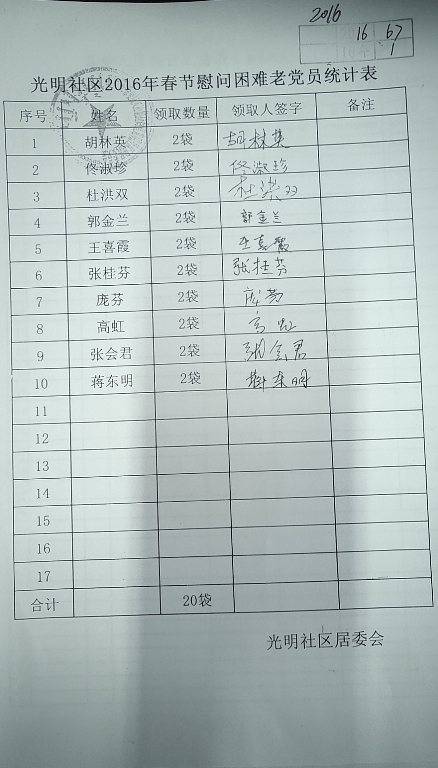 2016
16 67
1
光明社区2016年春节慰问困难老党员统计表
序号 姓名 领取数量 领取人签字 备注
1 胡林英 2袋 胡林英
2 佟淑珍 2袋 佟淑珍
3 杜洪双 2袋 杜洪双
4 郭金兰 2袋 郭金兰
5 王喜霞 2袋 王喜霞
6 张桂芬 2袋 张桂芬
7 庞芬 2袋 庞芬
8 高虹 2袋 高虹
9 张会君 2袋 张会君
10 蒋东明 2袋 蒋东明
11
12
13
14
15
16
17
合计 20袋
光明社区居委会